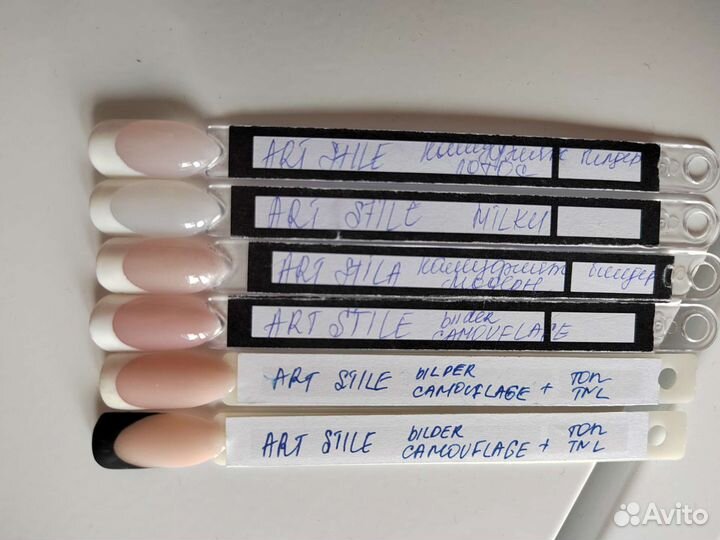 ART STILE камуфляж билдер
ЛОТОС
ART STILE MILKY
ART STILA камуфляж билдер
МОДЕРН
ART STILE bilder
CAMOUFLAGE
ART STILE bILDER TOП
CAMOUFLAGE + TNL
ART STILE bILDER TOП
CAMOUFLAGE + TNL
Avito